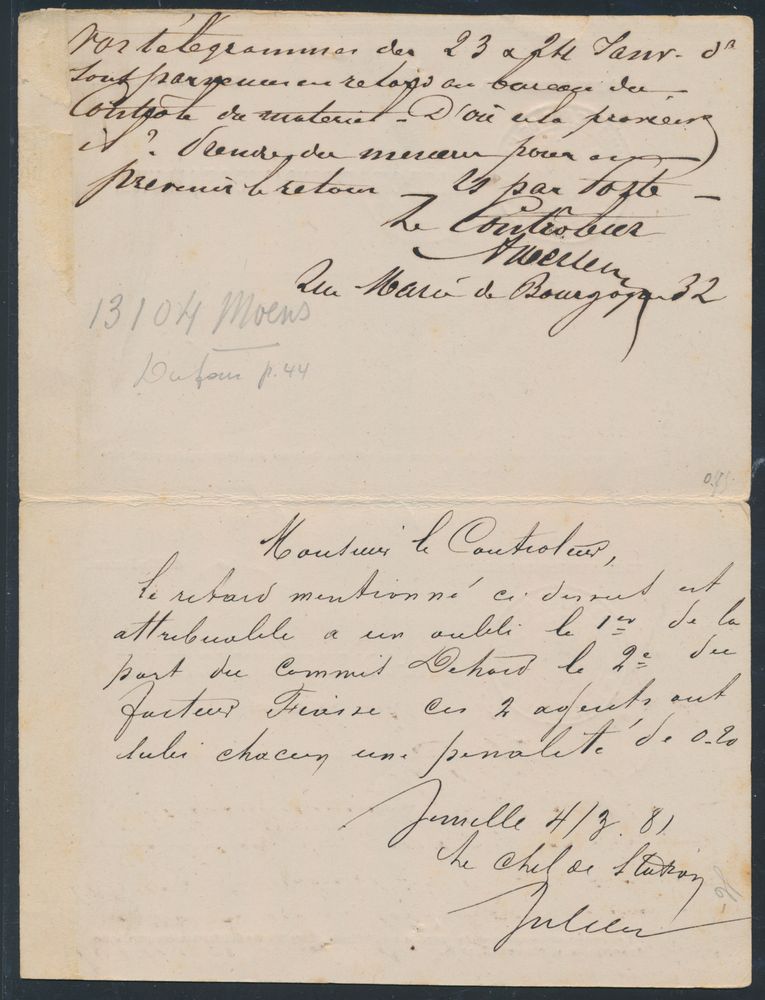 Vos télégrammes des 23 & 24 Janv. dr
sont parvenus en retard au bureau du
Contrôle du matériel - D'où cela provient
il ? Prendre des mesures pour en
prévenir le retour 2s par Poste -
Le Contrôleur
Rue Marie de Bourgogne 32
13104 Moens
Dufour p. 44
Monsieur le Controleur,
le retard mentionné ci dessus est
attribuable a un oubli le 1er de la
part du commis Dehard le 2e du
facteur Fiasse. Ces 2 agents ont
subi chacun une penalité de 0.20
Jemelle 4/3. 81
Le chef de Station